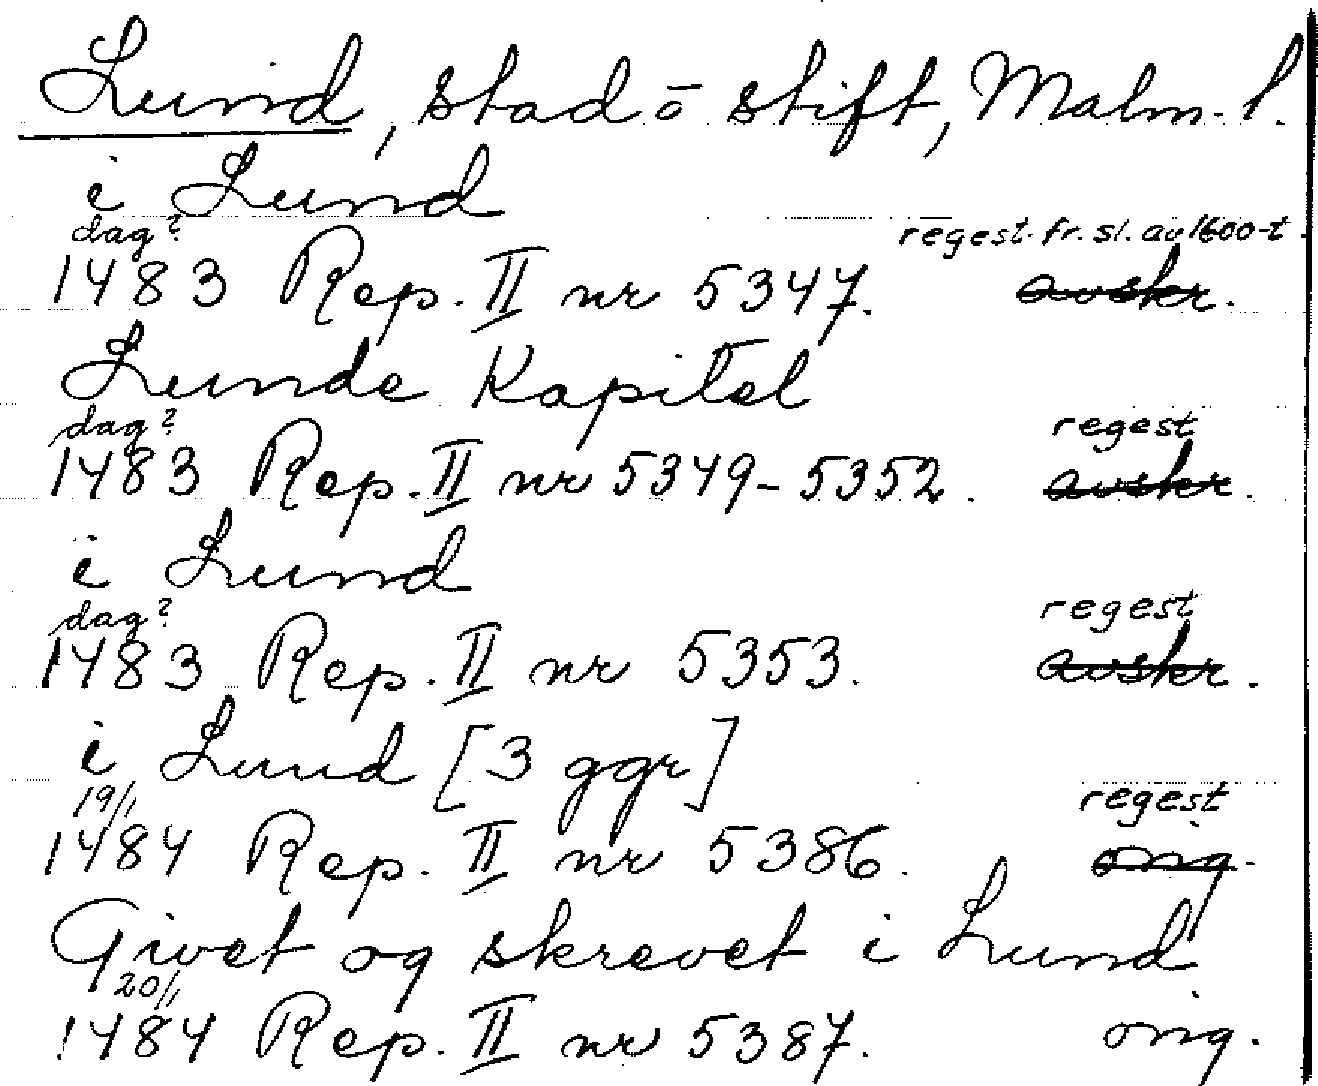 Lund, stad o stift, Malm. l.
i Lund
dag? regest fr. sl. av 1600-t.
1483 Rep. II nr 5347. avskr.
Lunde Kapitel
dag? regest
1483 Rep. II nr 5349-5352. avskr.
i Lund
dag? regest
1483 Rep. II nr 5353. avskr.
i Lund [3 ggr]
19/1 regest
1484 Rep. II nr 5386. orig.
Givet og skrevet i Lund
20/1
1484 Rep. II nr 5387. orig.